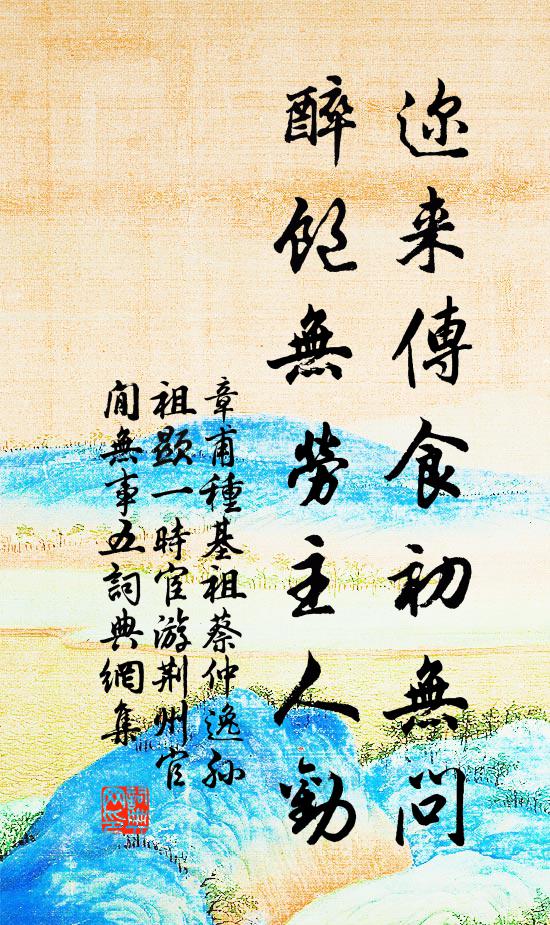 迩来傳食初無問
醉飽無勞主人勸
章甫種基祖蔡仲逸孙
祖顯一時宦游荆州官
閒無事五詞典網集